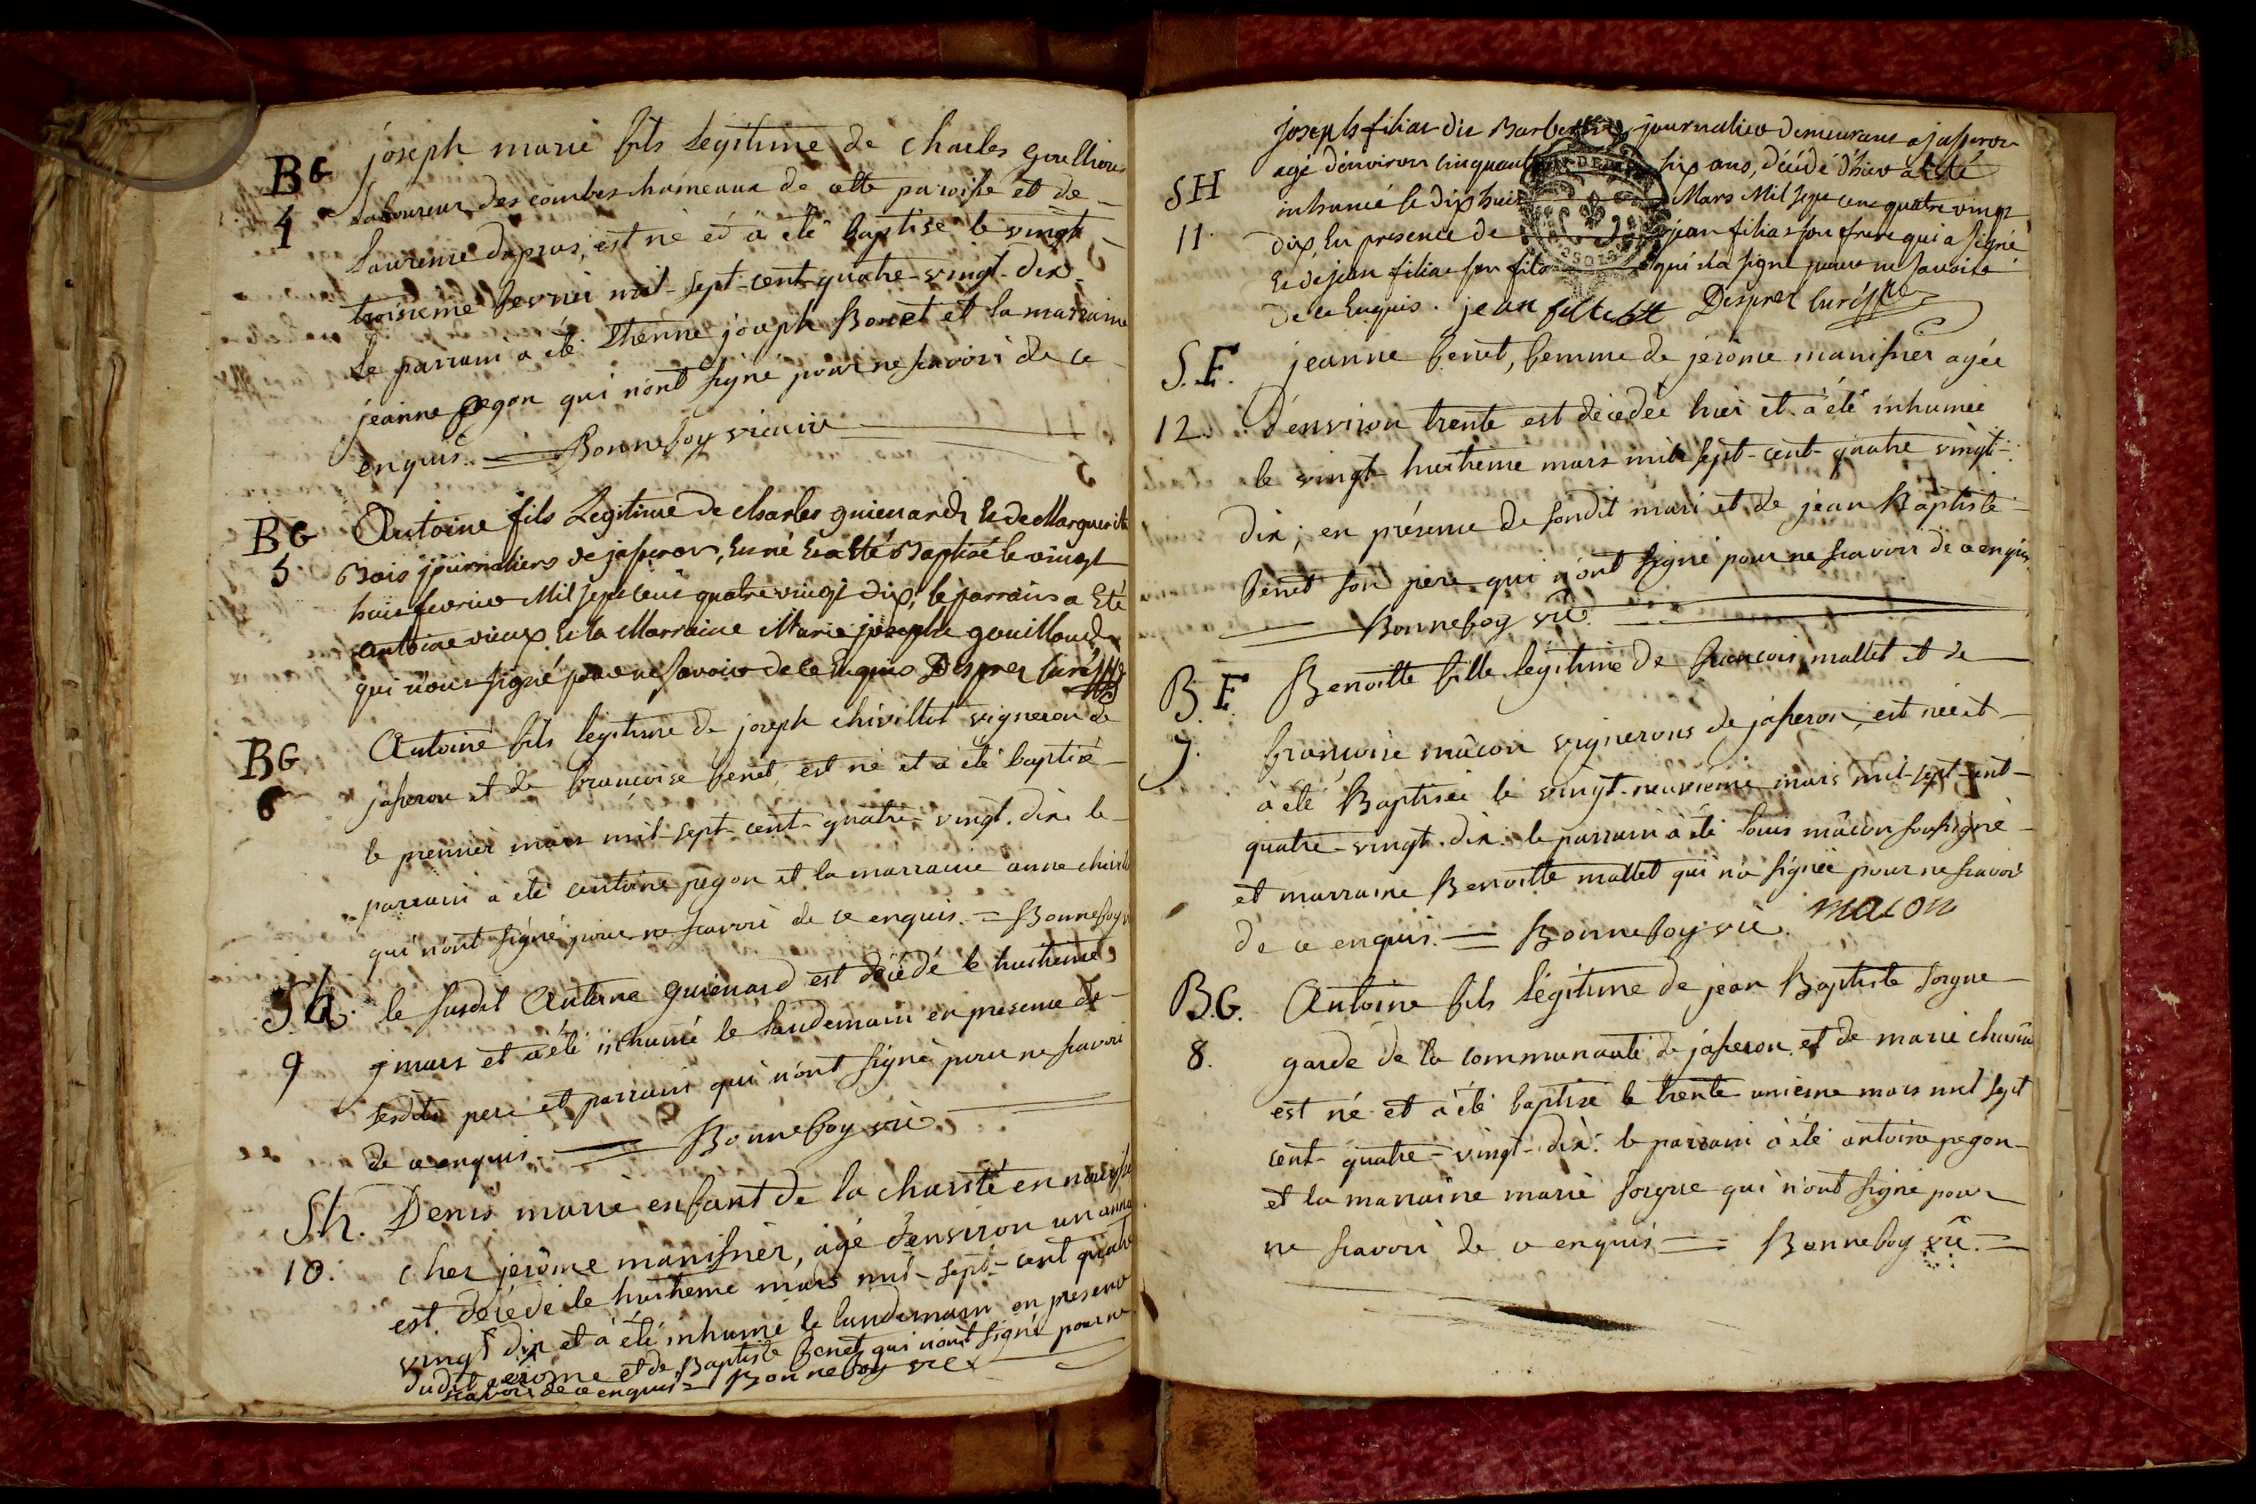 BG
4
joseph marie fils légitime de charles goullioud
Laboureur des combes hameaux de cette paroisse et de
Laurence dupras, est né et à été baptisé le vingt
troisieme fevrier mil-sept-cent-quatre-vingt-dix
Le parrain a été Ethienne joseph Bonet et la marraine
jeanne pegon qui n'ont signé pour ne scavoir de ce
enquis. = Bonnefoy vicaire
BG
5
Antoine fils Legitime de charles guienardi Et de Marguerite
Bois journaliers de jasseron, Est né Et a Eté Baptisé le vingt
huit fevrier Mil sept cent quatre vingt dix, le parrain a Eté
antoine vieux Et la Marraine Marie josephe gouilloud
qui n'ont signé pour ne savoir de ce Enquis Desprez Curé
BG
6
Antoine fils legitime de joseph chivillet vigneron de
jasseron et de francoise benet, est né et à été baptisé
le premier mars mil-sept-cent-quatre-vingt-dix le
parrain a été antoine pegon et la marraine anne
qui n'ont signé pour ne scavoir de ce enquis. = Bonnefoy
Sh.
9
le susdit Antoine guienard est décédé le huitieme
mars et a été inhumé le landemain en presence de
sesdits pere et parrain qui n'ont signé pour ne scavoir
de ce enquis = Bonnefoy vic
Sh.
10.
Denis marie enfant de la charité en nourrisse
chez jerôme manissier, agé d'environ un année
est décédé le huitieme mars mil-sept-cent quatre
vingt dix et à été inhumé le landemain en presence
dudit jerome et de Baptiste benet qui n'ont signé pour ne
scavoir de ce enquis = Bonnefoy vic
SH
11
joseph filiat dit Barbe journalier demeurant a jasseron
agé d'environ cinquante six ans, décédé d'hier a Eté
inhumé le dix huit Mars Mil sept cent quatre vingt
dix En presence de jean filiat son frere qui a signé
Et de jean filiat son fils qui n'a signé pour ne savoir
de ce Enquis. jean filliat Desprez Curé
S.F.
12.
jeanne benet, femme de jerôme manissier agée
d'environ trente est décédée hier et à été inhumée
le vingt-huitième mars mil sept-cent-quatre vingt-
dix; en présence de sondit mari et de jean Baptiste
Benet son pere qui n'ont signé pour ne scavoir de ce enquis
Bonnefoy vic.
B.F.
7.
Benoitte fille légitime de francois mallet et de
francoise mâcon vignerons de jasseron, est née et
à été Baptisée le vingt-neuvieme mars mil-sept-cent-
quatre-vingt-dix. le parrain à été louis mâcon soussigné
et marraine Benoitte mallet qui n'a signée pour ne scavoir
de ce enquis. = Bonnefoy vic. macon
B.G.
8.
Antoine fils légitime de jean Baptiste sorgue
garde de la communauté de jasseron, et de marie
est né et à été baptisé le trente unieme mars mil sept
cent-quatre-vingt-dix. le parrain à été antoine pegon
et la marraine marie sorgue qui n'ont signé pour
ne scavoir de ce enquis = Bonnefoy vic. =